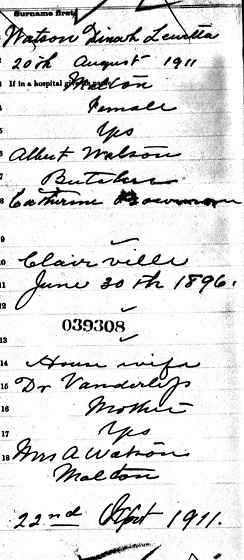 Surname first
Watson Dinah Lewetta
20th August 1911
If in a hospital give
Malton
Female
Yes
6 Albert Watson
7 Butcher
8 Catherine Bowman
9
10 Clairville
11 June 30th 1896.
12
039308
13
14 House wife
15 Dr Vanderlips
16 Mother
17 Yes
18 Mrs A Watson
Malton
22nd Sept 1911.